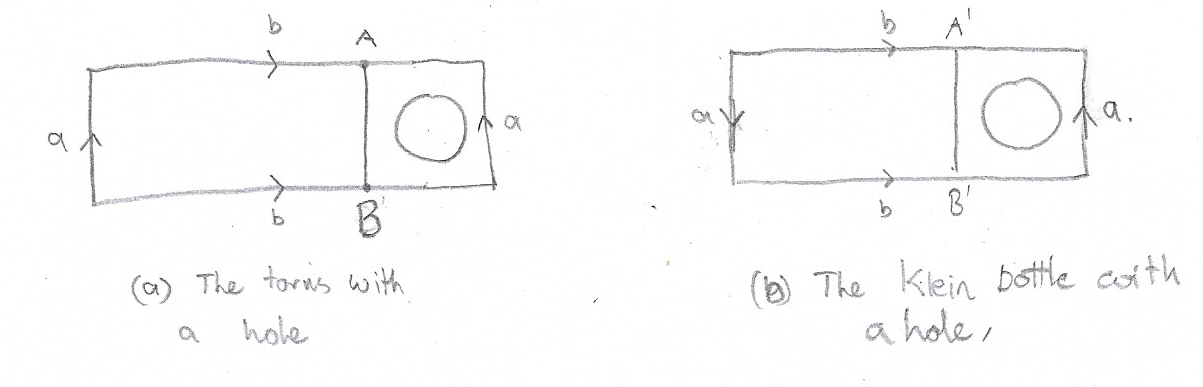 b
A
a
a
b
B
(a) The torus with
a hole
b
A'
a
a.
b
B'
(b) The Klein bottle with
a hole,